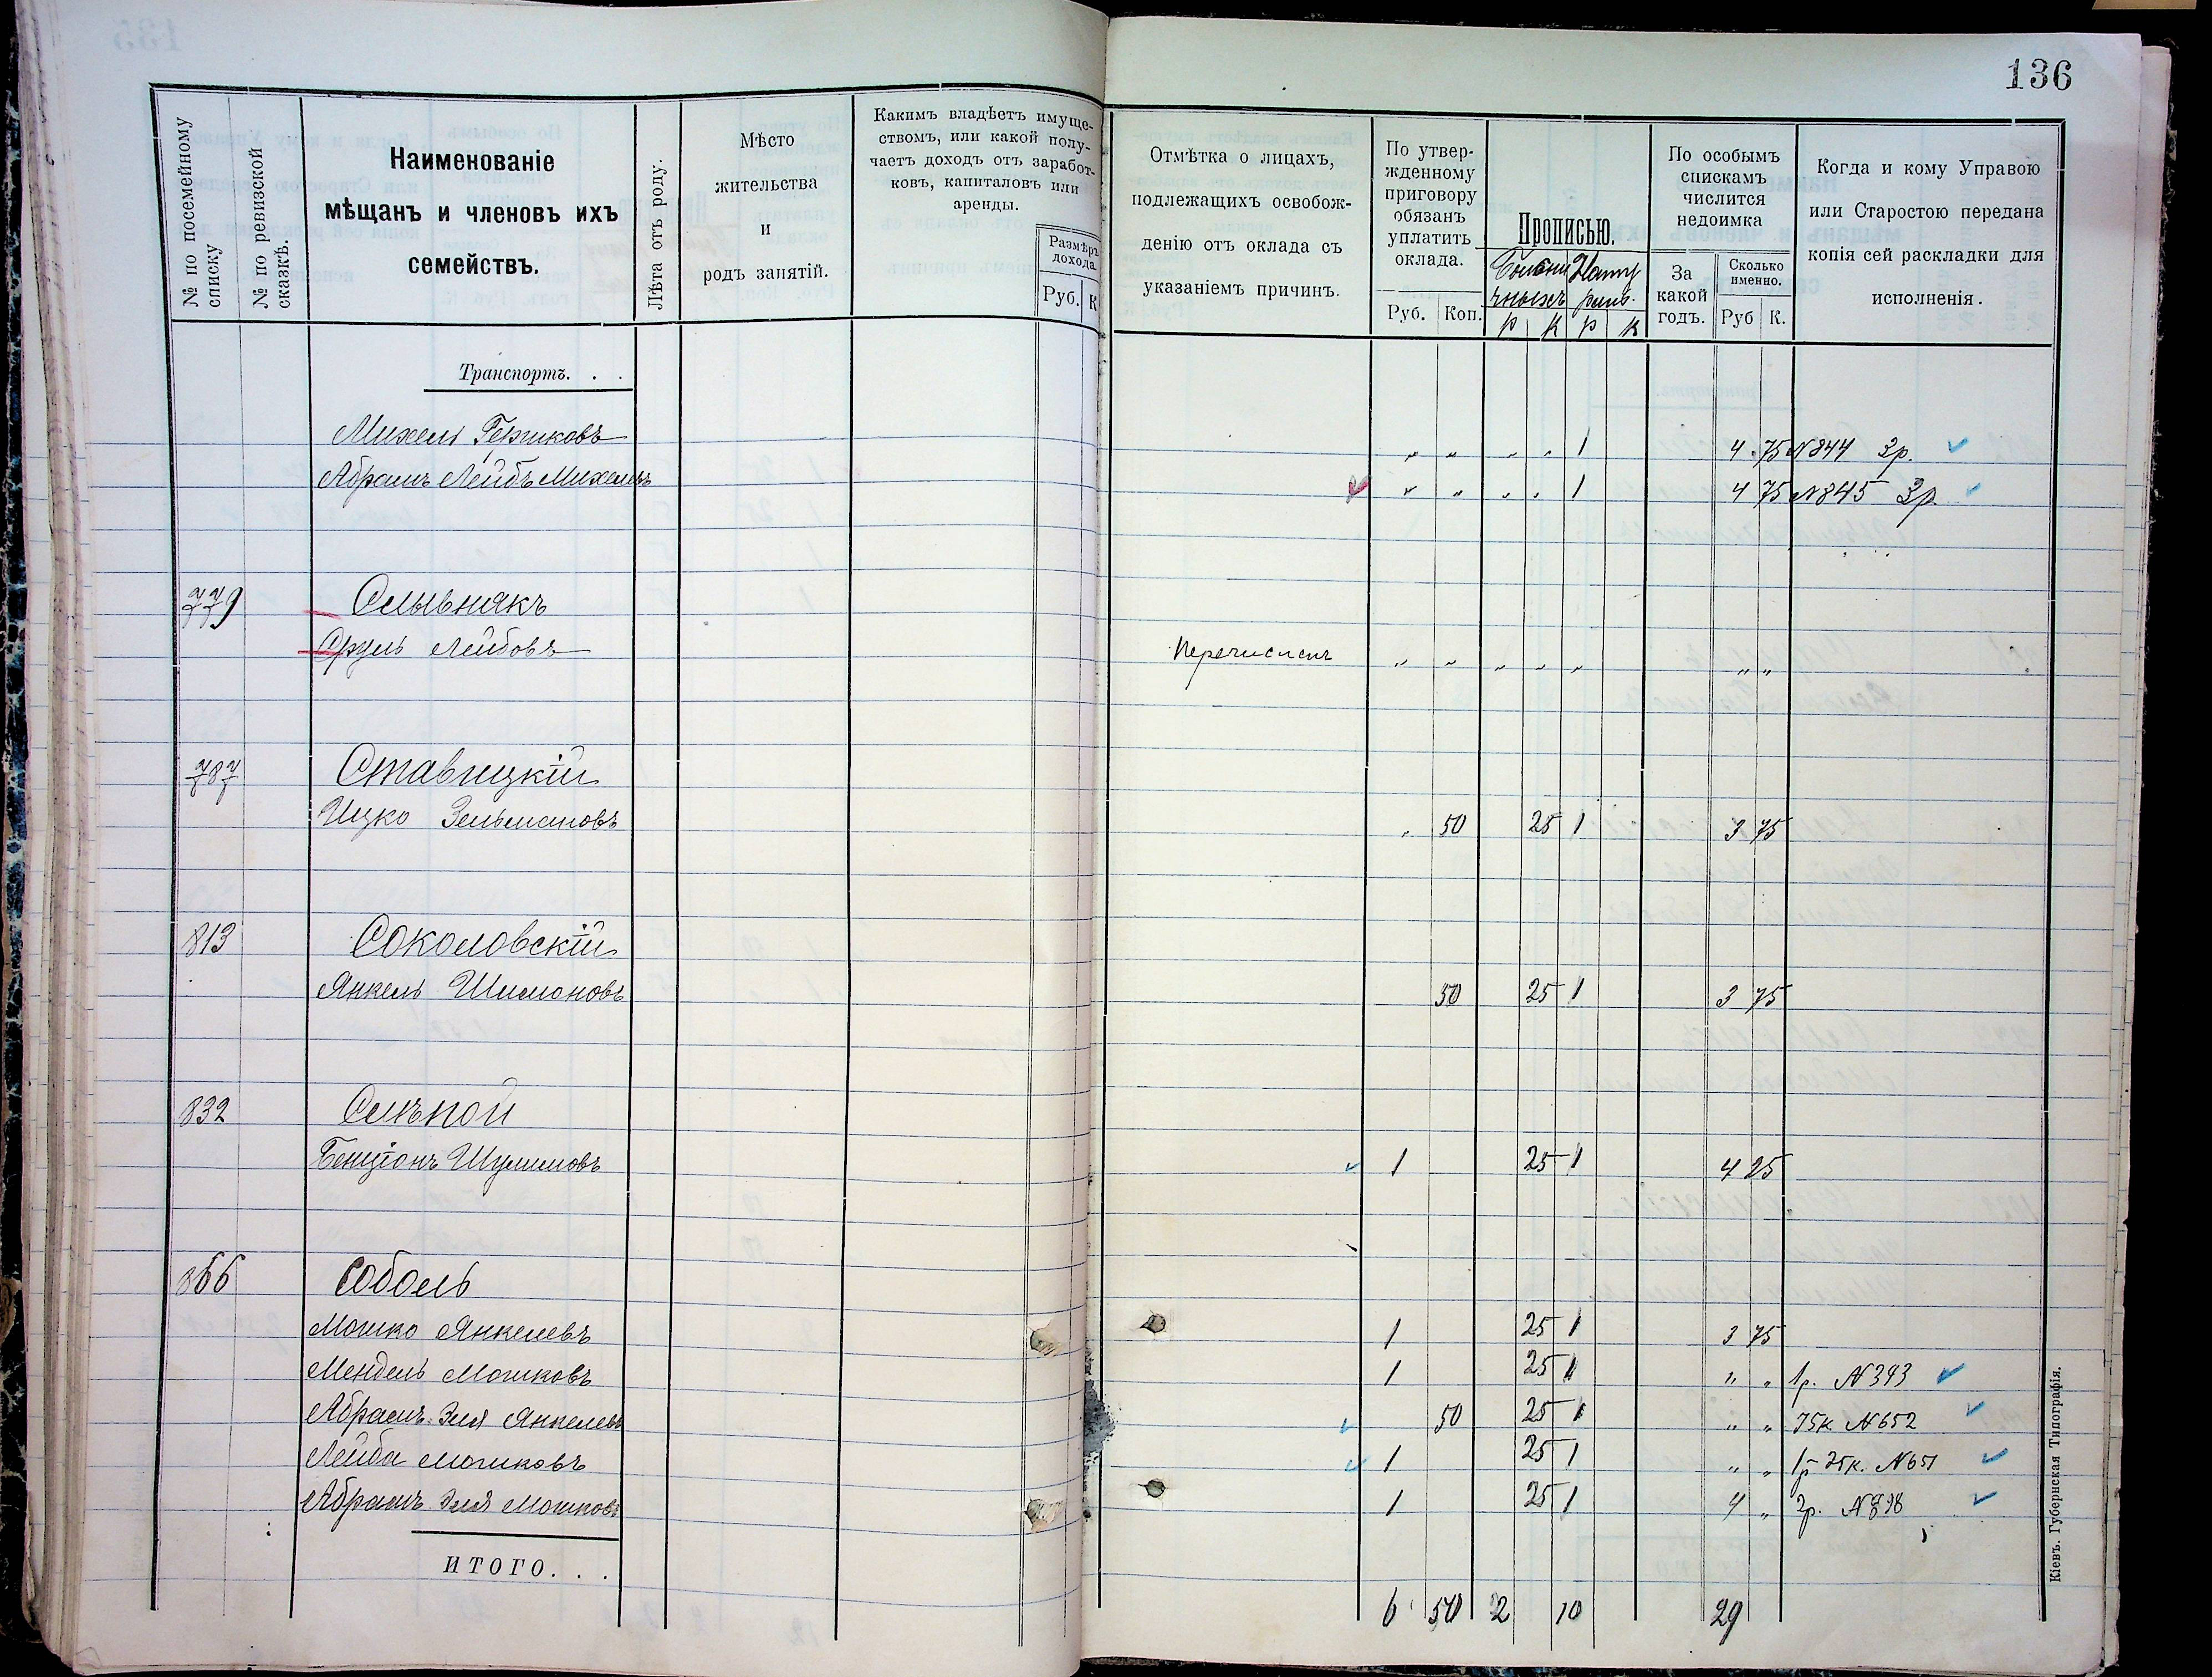 136
№ по посемейному списку
№ по ревизской сказкѣ.
Наименованіе
мѣщанъ и членовъ ихъ
семействъ.
Лѣта отъ роду.
Мѣсто
жительства
и
родъ занятій.
Какимъ владѣетъ имуще-
ствомъ, или какой полу-
чаетъ доходъ отъ заработ-
ковъ, капиталовъ или
аренды.
Размѣръ
дохода.
Руб. К
Отмѣтка о лицахъ,
подлежащихъ освобож-
денію отъ оклада съ
указаніемъ причинъ.
По утвер-
жденному
приговору
обязанъ
уплатить
оклада.
Руб. Коп.
Прописью.
р к р к
По особымъ
спискамъ
числится
недоимка
За
какой
годъ.
Сколько
именно.
Руб К.
Когда и кому Управою
или Старостою передана
копія сей раскладки для
исполненія.
Транспортъ. . .
Михель Гершковъ " " " " 1 4 75 №844 3р.
Абрамъ Лейбъ Михелевъ " " " " 1 4 75 №845 3р.
779 Сливнякъ
Сруль Лейбовъ Перечисленъ " " " " " " "
787 Ставицкій
Ицко Зельмановъ " 50 25 1 3 75
813 Соколовскій
Янкель Шимоновъ 50 25 1 3 75
832 Слѣпой
Бенціонъ Шулимовъ 1 25 1 4 25
866 Соболь
Мошко Янкелевъ 1 25 1 3 75
Мендель Мошковъ 1 25 1 " " 1р. №393
Абрамъ Эля Янкелевъ 50 25 1 " " 75к №652
Лейба Мошковъ 1 25 1 " " 1р 25к. №651
Абрамъ Эля Мошковъ 1 25 1 4 " 2р. №898
ИТОГО. . .
6 50 2 10 29
Кіевъ. Губернская Типографія.